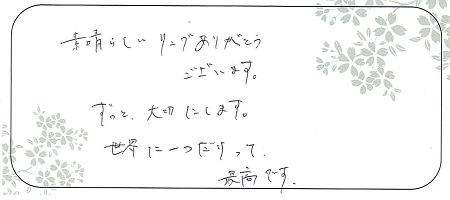 素晴らしいリングありがとう
ございます。
ずっと、大切にします。
世界に一つだけって、
最高です。